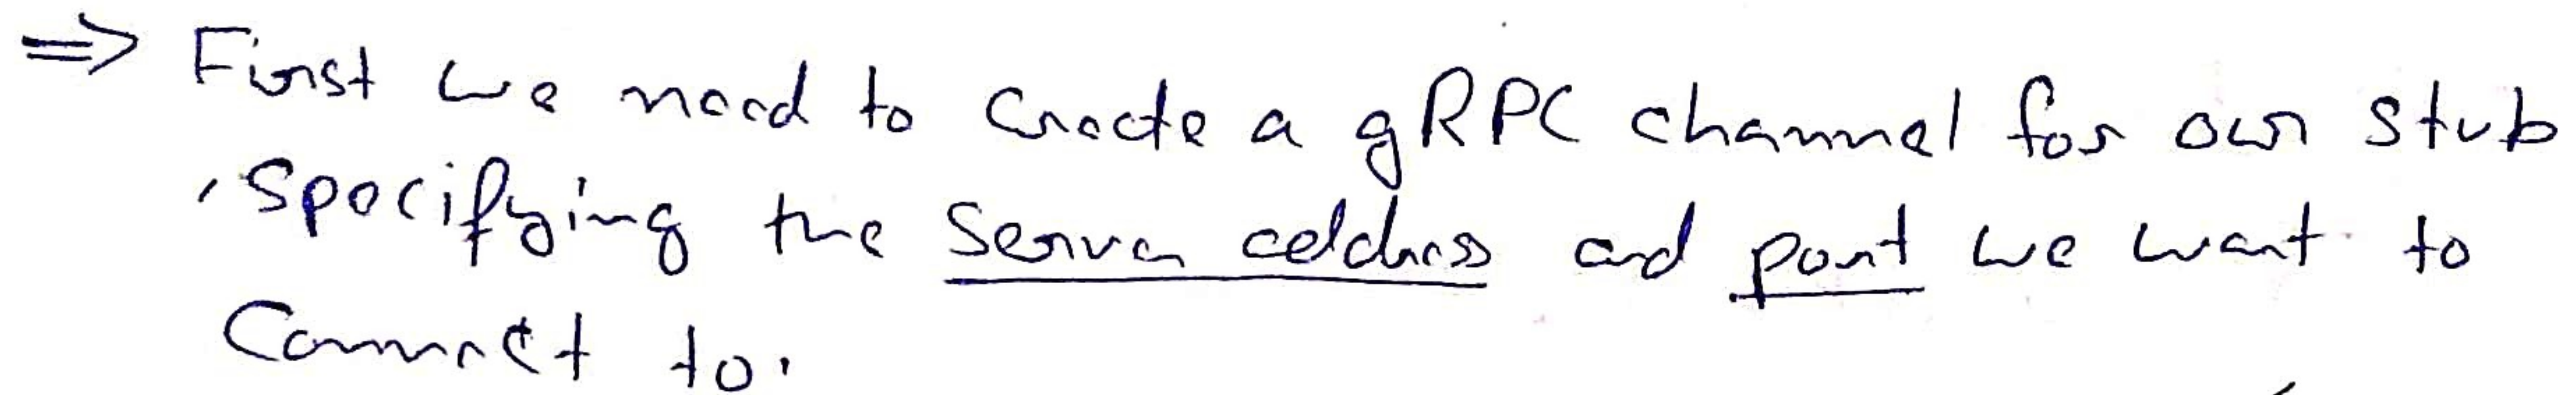 => First we need to create a gRPC channel for our stub
, specifying the server address and port we want to
connect to.